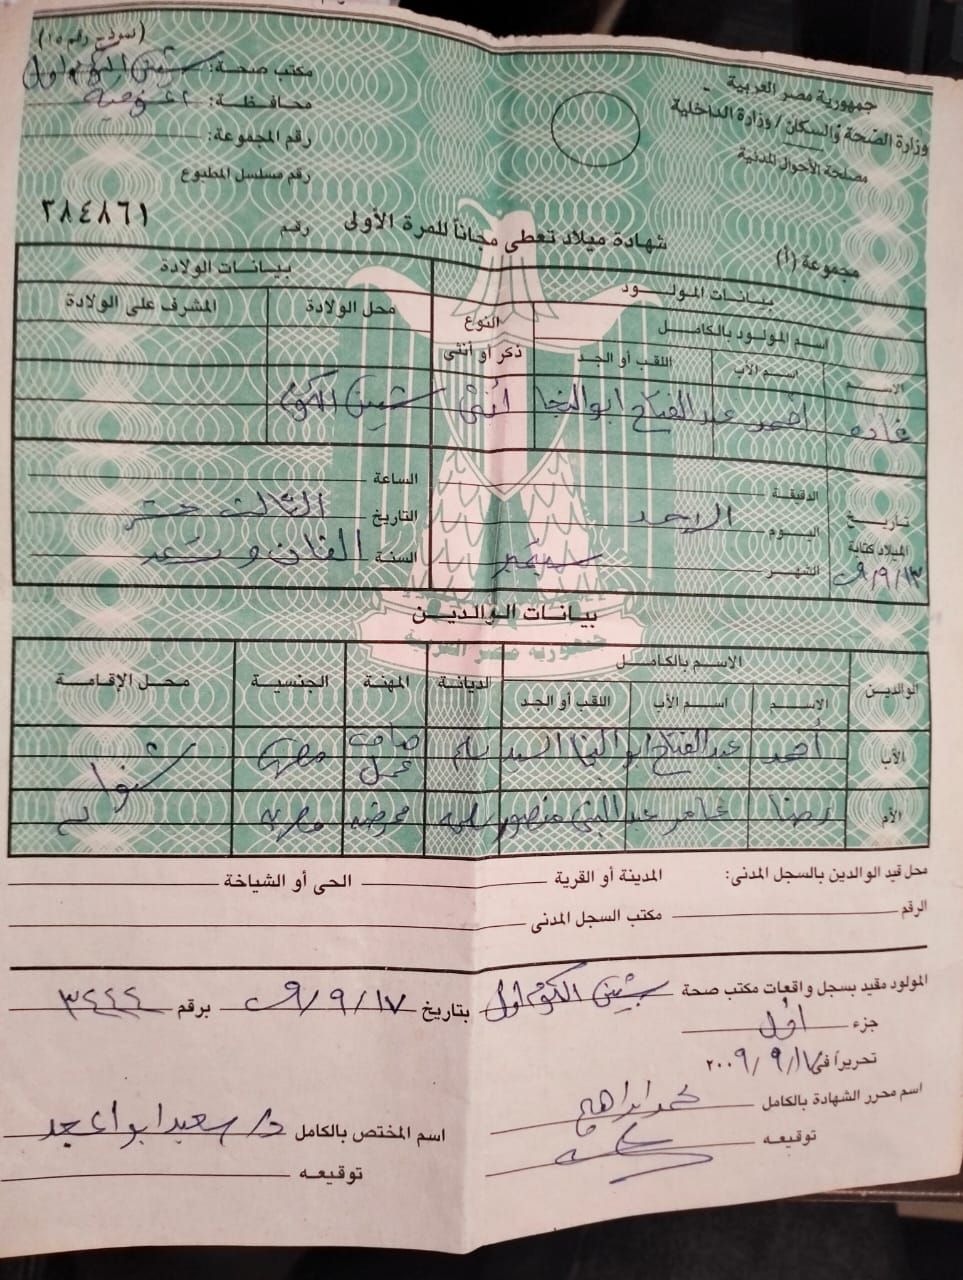 (نموذج رقم ١٥)
جمهورية مصر العربية
وزارة الصحة والسكان / وزارة الداخلية
مصلحة الأحوال المدنية
مكتب صحة: شبين الكوم اول
محافظة: المنوفية
رقم المجموعة:
رقم مسلسل المطبوع
شهادة ميلاد تعطى مجاناً للمرة الأولى
رقم ٣٨٤٨٦١
مجموعة (أ)
بيانات المولود
بيانات الولادة
اسم المولود بالكامل
النوع
ذكر أو أنثى
محل الولادة
المشرف على الولادة
الاسم
اسم الأب
اللقب أو الجد
غاده أحمد عبد الفتاح ابو النجا أنثى شبين الكوم
تاريخ
الميلاد كتابة
٩/٩/١٣
الدقيقة
الساعة
اليوم الاحد
التاريخ الثالث عشر
الشهر سبتمبر
السنة الفان وتسعه
بيانات الوالدين
جمهورية مصر العربية
الوالدين
الاسم بالكامل
الديانة
المهنة
الجنسية
محل الإقامة
الاسم
اسم الأب
اللقب أو الجد
الأب أحمد عبد الفتاح ابو النجا السيد مسلم صاحب عمل مصرى
الأم رضا عامر عبد النبى منصور مسلمه ممرضه مصريه
محل قيد الوالدين بالسجل المدنى:
المدينة أو القرية
الحى أو الشياخة
الرقم
مكتب السجل المدنى
المولود مقيد بسجل واقعات مكتب صحة شبين الكوم اول بتاريخ ٩/٩/١٧ برقم ٣٤٤٤
جزء اول
تحريراً فى ١٧/٩/٢٠٠٩
اسم محرر الشهادة بالكامل محمد ابراهيم
اسم المختص بالكامل د/ سعيد ابو المجد
توقيعه
توقيعه